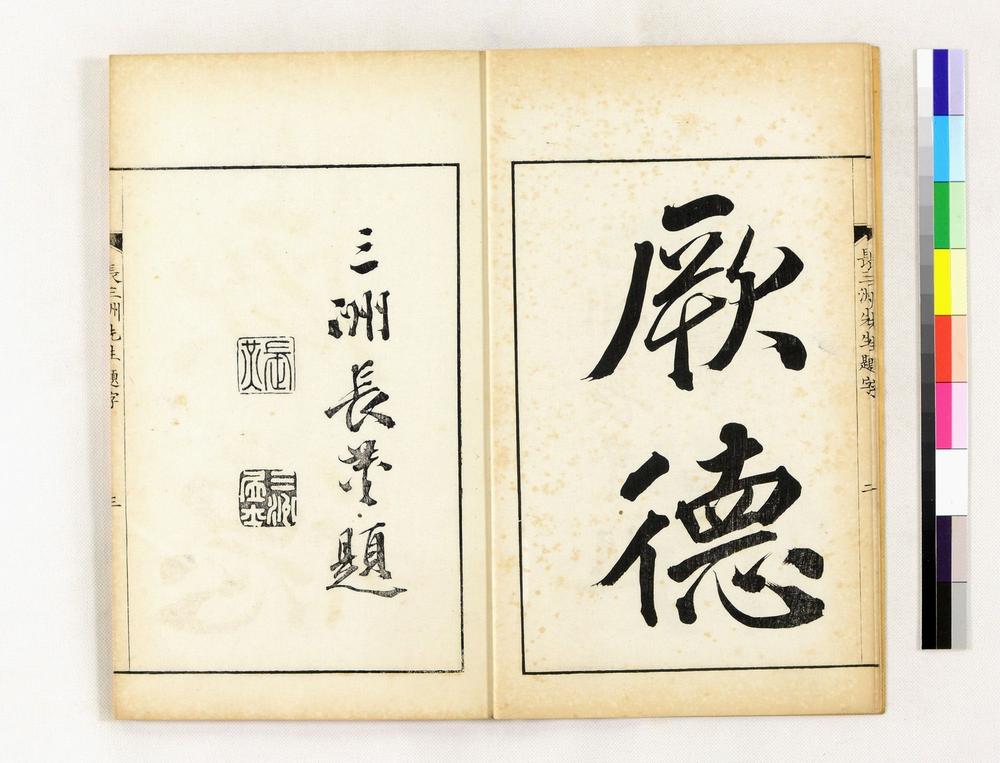 厥
德
長三洲先生題字
二
三洲長炗題
長三洲先生題字
三